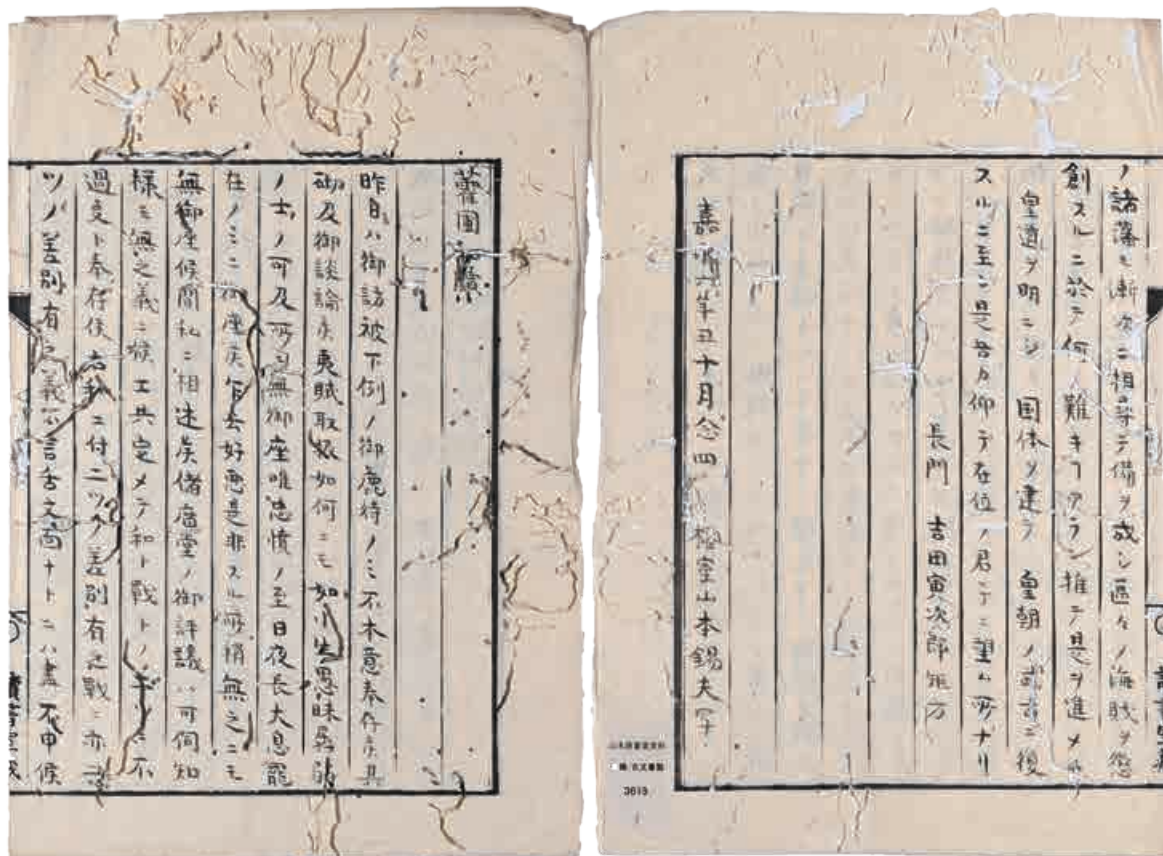 ノ諸藩モ漸次ニ相尋テ備ヲ成シ区々ノ海賊ヲ懲
創スルニ於テ何ノ難キヿアラン推テ是ヲ進メ
皇道ヲ明ニシ 国体ヲ建テ 皇朝ノ武 古ニ復
スルニ至ン是吾カ仰テ在位ノ君子ニ望ム所ナリ
長門 吉田寅次郎矩方
嘉永六 丑十月念四 山本錫夫写
昨日ハ御訪被下例ノ御麁待ノミ不本意奉存候其
砌及御談論候夷賊取扱如何ニモ如小生愚昧
ノ士ノ可及所ニ無御座唯忠憤ノ至日夜長大息罷
在ノミニ御座候乍去好悪是非スル所稍無之ニモ
無御座候間私ニ相述候偖廟堂ノ御評議ハ可伺知
様モ無之義ニ候エ共定メテ和ト戦トノ ニ不
過夏ト奉存候右和ニ付二ツノ差別有之戦ニ亦
ツノ差別有之義不言舌文面ナトニハ尽不申候
3619